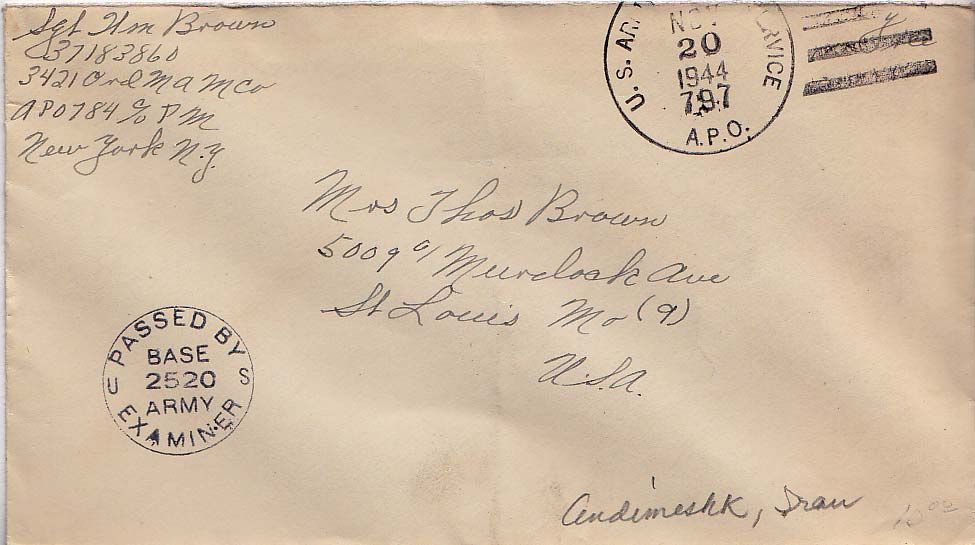 Sgt Wm Brown
37183860
3421 Ord M A M Co
APO 784 c/o P M
New York N.Y.
U.S. AR
SERVICE
NOV
20
1944
797
A.P.O.
Free
Mrs Thos Brown
5009 a/ Murdock Ave
St Louis Mo (9)
U.S.A.
PASSED BY
BASE
U 2520 S
ARMY
EXAMINER
Andimeshk, Iran
10.00